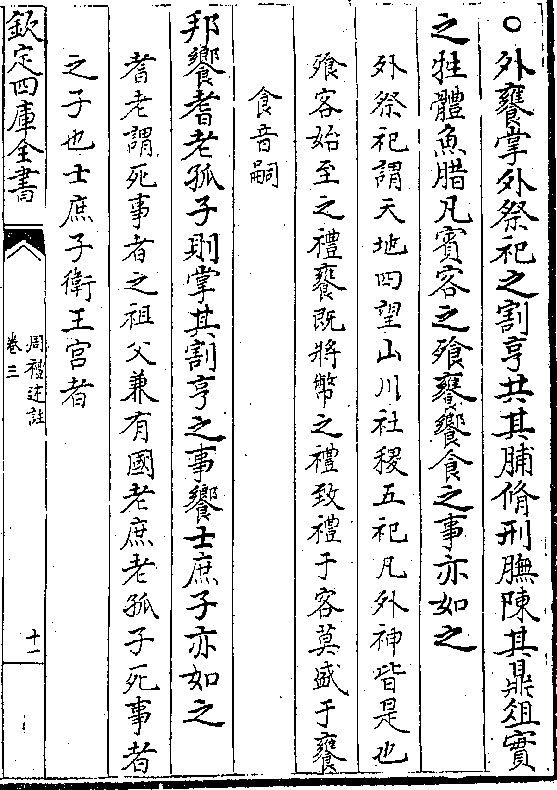 ○外饔掌外祭祀之割亨共其脯脩刑膴陳其鼎俎實
之牲體魚腊凡賓客之飱饔饗食之事亦如之
外祭祀謂天地四望山川社稷五祀凡外神皆是也
飱客始至之禮饔既將幣之禮致禮于客莫盛于饔
食音嗣
邦饗耆老孤子則掌其割亨之事饗士庶子亦如之
耆老謂死事者之祖父兼有國老庶老孤子死事者
之子也士庶子衛王宫者
欽定四庫全書
周禮述註
卷三
十一